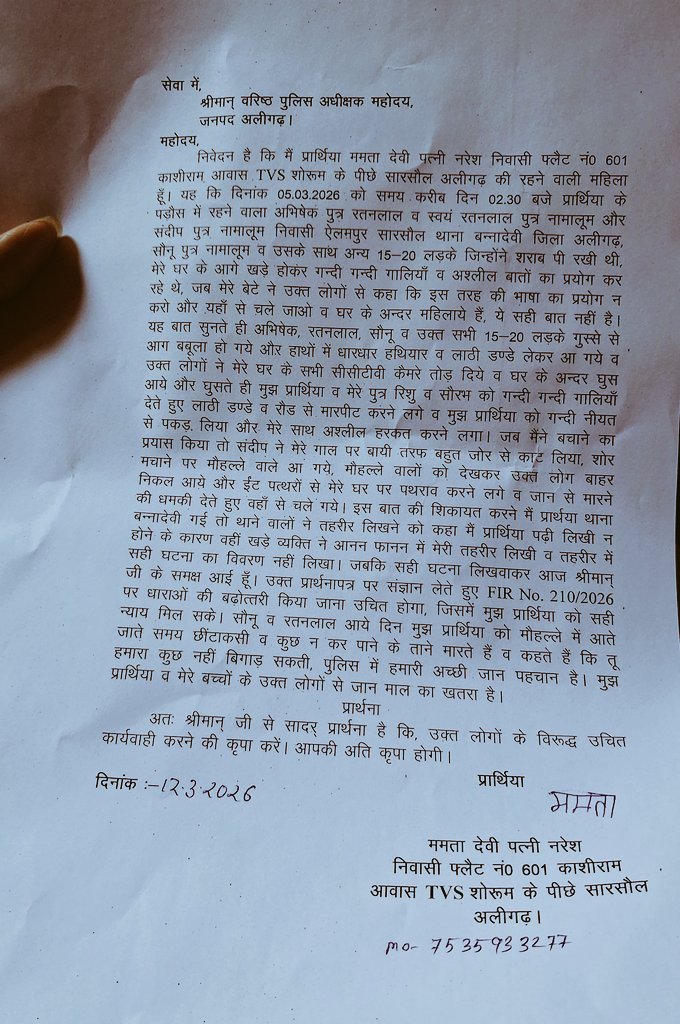 सेवा में,
श्रीमान् वरिष्ठ पुलिस अधीक्षक महोदय,
जनपद अलीगढ़।
महोदय,
निवेदन है कि मैं प्रार्थिया ममता देवी पत्नी नरेश निवासी फ्लैट नं0 601
काशीराम आवास TVS शोरूम के पीछे सारसौल अलीगढ़ की रहने वाली महिला
हूँ। यह कि दिनांक 05.03.2026 को समय करीब दिन 02.30 बजे प्रार्थिया के
पड़ौस में रहने वाला अभिषेक पुत्र रतनलाल व स्वयं रतनलाल पुत्र नामालूम और
संदीप पुत्र नामालूम निवासी ऐलमपुर सारसौल थाना बन्नादेवी जिला अलीगढ़,
सौनू पुत्र नामालूम व उसके साथ अन्य 15–20 लड़के जिन्होंने शराब पी रखी थी,
मेरे घर के आगे खड़े होकर गन्दी गन्दी गालियाँ व अश्लील बातों का प्रयोग कर
रहे थे, जब मेरे बेटे ने उक्त लोगों से कहा कि इस तरह की भाषा का प्रयोग न
करो और यहाँ से चले जाओ व घर के अन्दर महिलाये हैं, ये सही बात नहीं है।
यह बात सुनते ही अभिषेक, रतनलाल, सौनू व उक्त सभी 15–20 लड़के गुस्से से
आग बबूला हो गये और हाथों में धारधार हथियार व लाठी डण्डे लेकर आ गये व
उक्त लोगों ने मेरे घर के सभी सीसीटीवी कैमरे तोड़ दिये व घर के अन्दर घुस
आये और घुसते ही मुझ प्रार्थिया व मेरे पुत्र रिशु व सौरभ को गन्दी गन्दी गालियाँ
देते हुए लाठी डण्डे व रौड से मारपीट करने लगे व मुझ प्रार्थिया को गन्दी नीयत
से पकड़ लिया और मेरे साथ अश्लील हरकत करने लगा। जब मैंने बचाने का
प्रयास किया तो संदीप ने मेरे गाल पर बायी तरफ बहुत जोर से काट लिया, शोर
मचाने पर मौहल्ले वाले आ गये, मौहल्ले वालों को देखकर उक्त लोग बाहर
निकल आये और ईंट पत्थरों से मेरे घर पर पथराव करने लगे व जान से मारने
की धमकी देते हुए वहाँ से चले गये। इस बात की शिकायत करने मैं प्रार्थया थाना
बन्नादेवी गई तो थाने वालों ने तहरीर लिखने को कहा मैं प्रार्थिया पढ़ी लिखी न
होने के कारण वहीं खड़े व्यक्ति ने आनन फानन में मेरी तहरीर लिखी व तहरीर में
सही घटना का विवरण नहीं लिखा। जबकि सही घटना लिखवाकर आज श्रीमान्
जी के समक्ष आई हूँ। उक्त प्रार्थनापत्र पर संज्ञान लेते हुए FIR No. 210/2026
पर धाराओं की बढ़ोत्तरी किया जाना उचित होगा, जिसमें मुझ प्रार्थिया को सही
न्याय मिल सके। सौनू व रतनलाल आये दिन मुझ प्रार्थिया को मौहल्ले में आते
जाते समय छींटाकसी व कुछ न कर पाने के ताने मारते हैं व कहते हैं कि तू
हमारा कुछ नहीं बिगाड़ सकती, पुलिस में हमारी अच्छी जान पहचान है। मुझ
प्रार्थिया व मेरे बच्चों के उक्त लोगों से जान माल का खतरा है।
प्रार्थना
अतः श्रीमान् जी से सादर् प्रार्थना है कि, उक्त लोगों के विरूद्ध उचित
कार्यवाही करने की कृपा करें। आपकी अति कृपा होगी।
दिनांक :–12.3.2026
प्रार्थिया
ममता
ममता देवी पत्नी नरेश
निवासी फ्लैट नं0 601 काशीराम
आवास TVS शोरूम के पीछे सारसौल
अलीगढ़।
mo- 7535933277